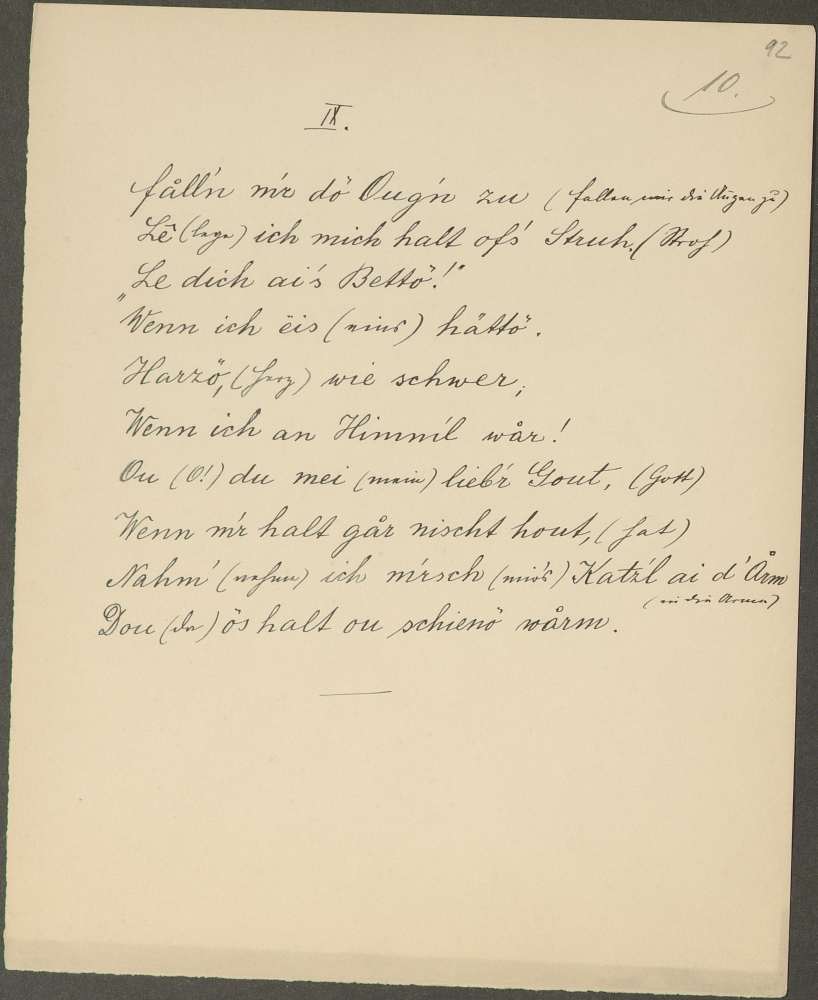 92
10.
IX.
fålln m'r dö Oug'n zu (fallen mir die Augen zu)
Lê (lege) ich mich halt of's Struh, (Stroh)
"Le dich ai's Bettö!"
Wenn ich ëis (eins) hättö.
Harzö, (Herz) wie schwer,
Wenn ich an Himm'l wår!
Ou (O!) du mei (mein) lieb'r Gout, (Gott)
Wenn m'r halt går nischt hout, (hat)
Nahm' (nehme) ich m'rsch (mir's) Katz'l ai d' Årm
(in die Armen)
Dou (da) ös halt ou schienö wårm.